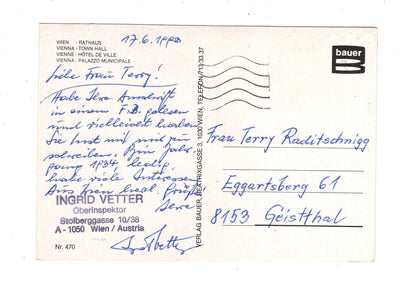 17.6.1992
WIEN - RATHAUS
VIENNA - TOWN HALL
VIENNE - HÔTEL DE VILLE
VIENNA - PALAZZO MUNICIPALE
liebe Frau Terry!
Habe Ihre Anschrift
in einem F.B. gelesen
und vielleicht haben
Sie Lust mir zu
schreiben. Bin Jahr-
gang 1934 ledig,
habe viele Interessen
Aus Wien Grüße
Ihre
INGRID VETTER
Oberinspektor
Stolberggasse 10/36
A - 1050 Wien / Austria
Nr. 470
VERLAG BAUER, BEATRIXGASSE 3, 1030 WIEN, TELEFON 713 33 37
bauer
Frau Terry Raditschnigg
Eggartsberg 61
8153 Geistthal